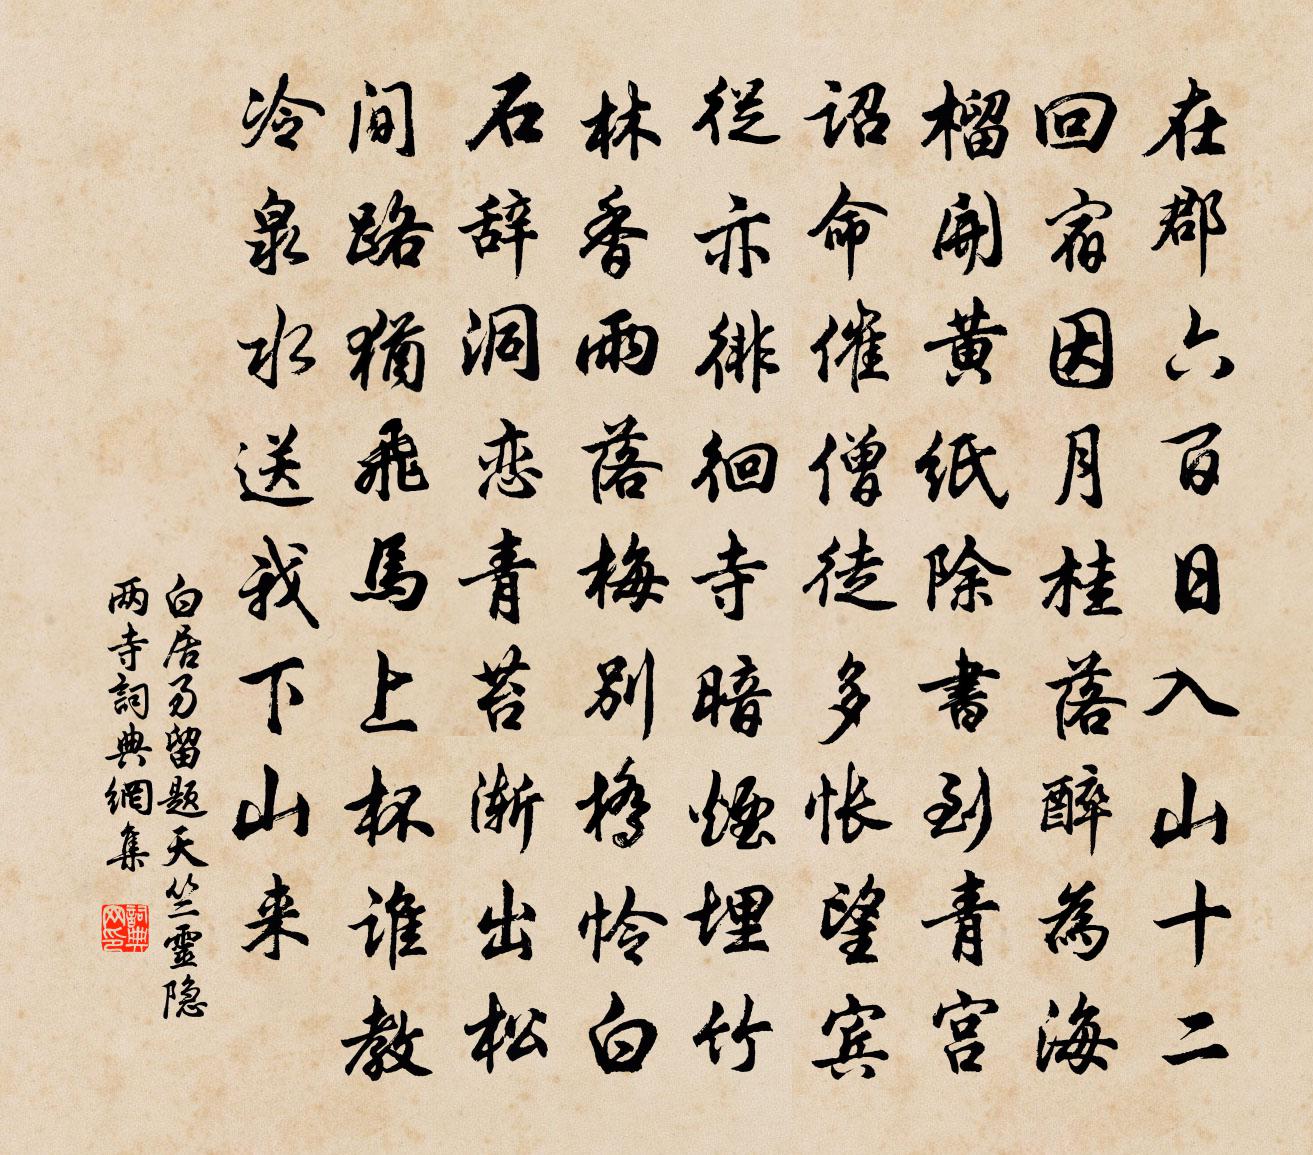 在郡六百日入山十二
回宿因月桂落醉為海
榴開黄紙除書到青宫
诏命催僧徒多怅望宾
從亦徘徊寺暗煙埋竹
林香雨落梅别橋怜白
石辞洞恋青苔渐出松
间路猶飛馬上杯谁教
冷泉水送我下山来
白居易留题天竺靈隐
两寺詞典網集
詞典網印